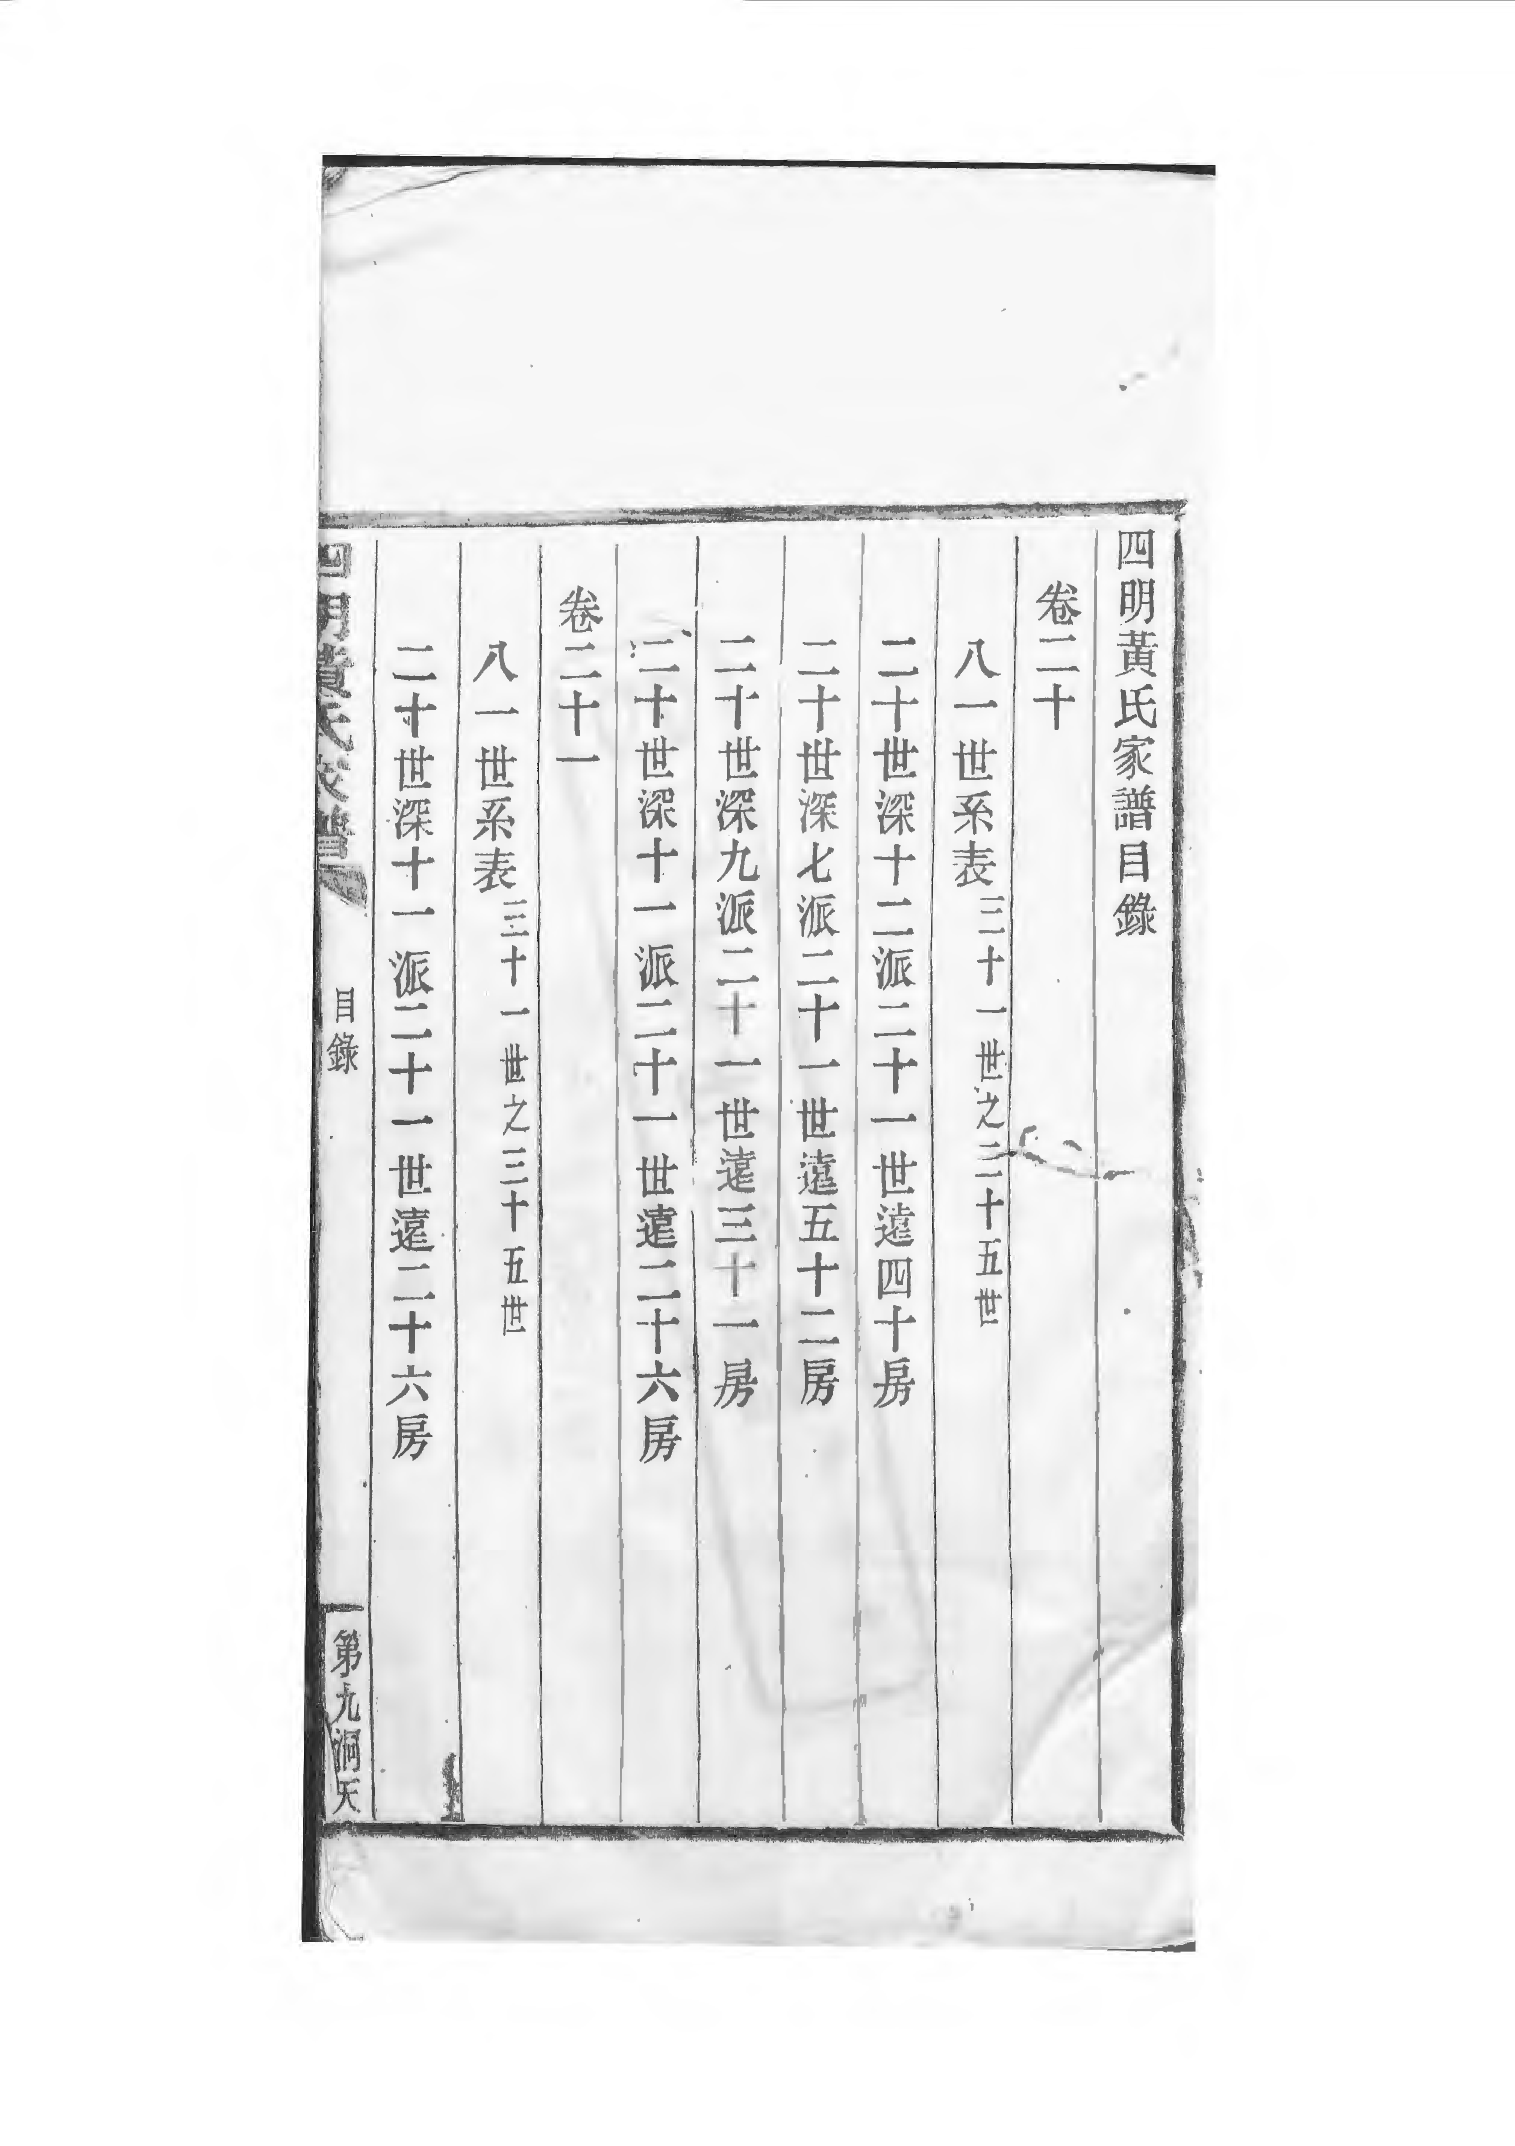 四明黃氏家譜目錄
卷二十
八一世系表三十一世之三十五世
二十世深十二派二十一世遠四十房
二十世深七派二十一世遠五十二房
二十世深九派二十一世遠三十一房
二十世深十一派二十一世遠二十六房
卷二十一
八一世系表三十一世之三十五世
二十世深十一派二十一世遠二十六房
四明黃氏家譜
目錄
第九洞天